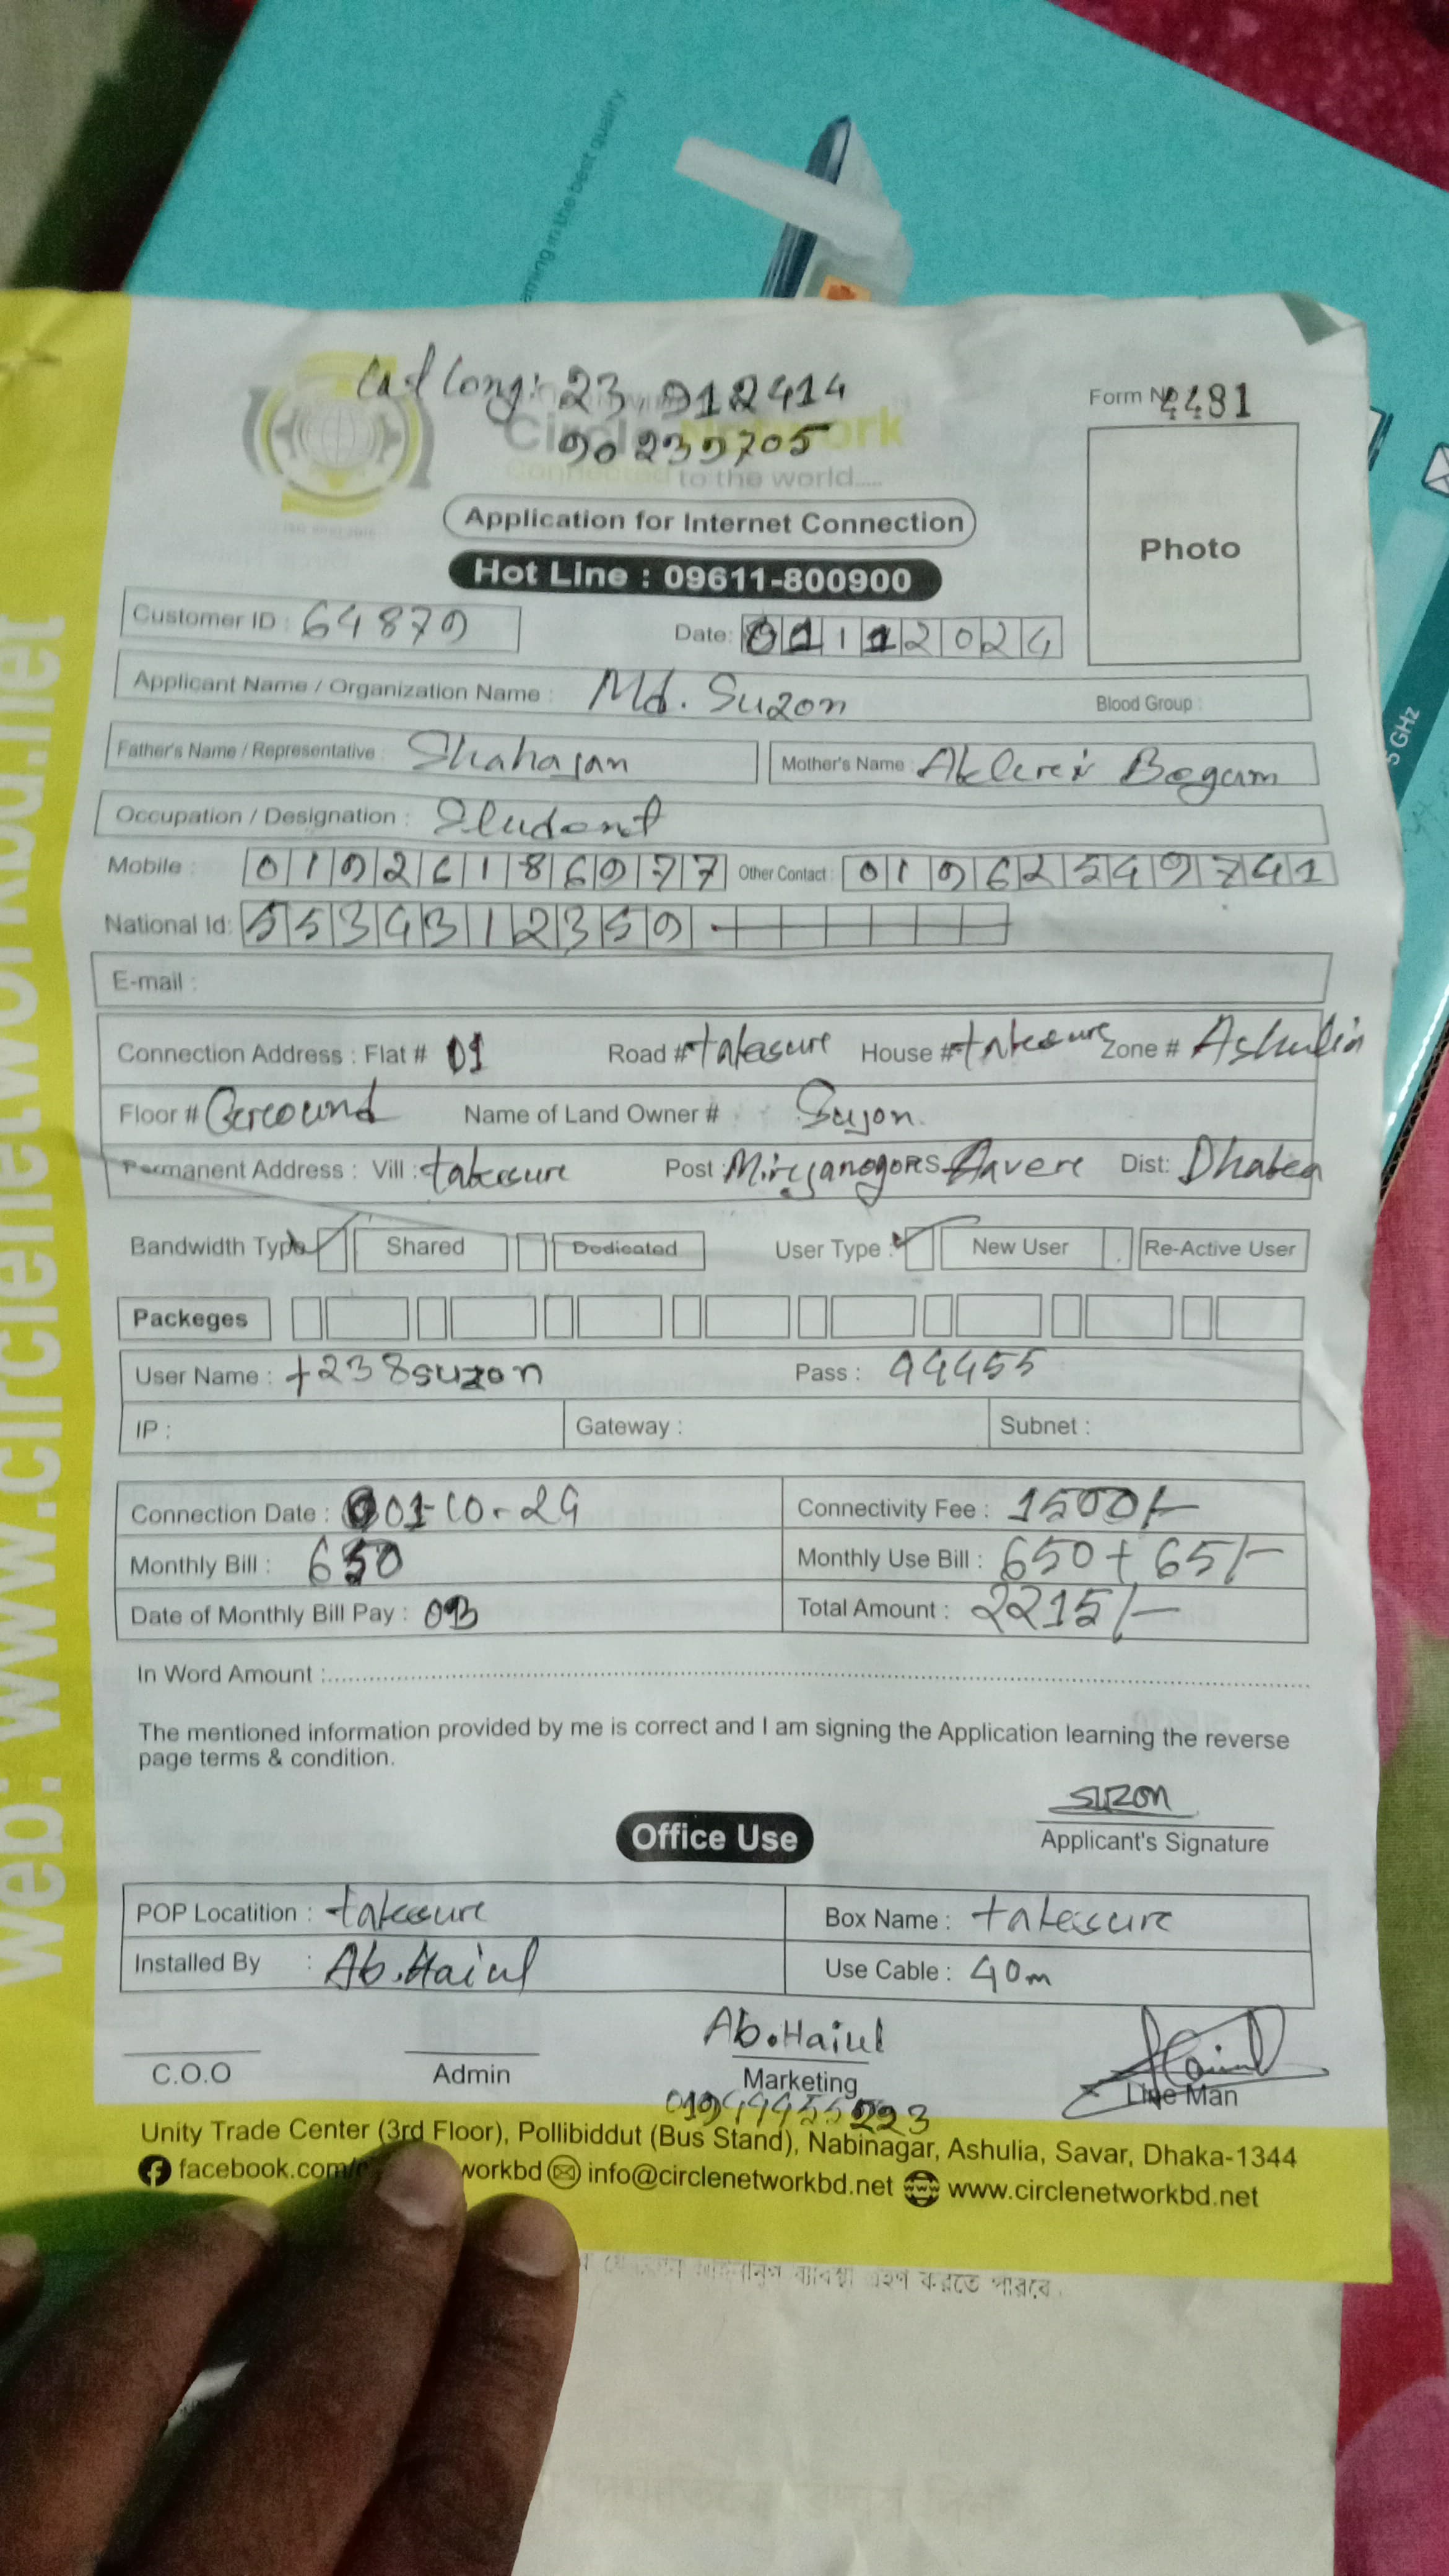 aming in the best quality
Lat Long: 23.912414
90239705
Circle Network
Connected to the world....
Form No 4481
Photo
Application for Internet Connection
Hot Line : 09611-800900
Customer ID : 64879
Date: 01112024
Applicant Name / Organization Name : Md. Suzon Blood Group :
Father's Name / Representative : Shahajan Mother's Name : Begum
Occupation / Designation : Student
Mobile : 01926186977 Other Contact : 01962549741
National Id: 5534312359
E-mail :
Connection Address : Flat # 01 Road # takesure House # takesure Zone # Ashulia
Floor # Geround Name of Land Owner # Sujon
Permanent Address : Vill : takesure Post : P.S. Dist: Dhaka
Bandwidth Type Shared Dedicated User Type : New User Re-Active User
Packeges
User Name : t238suzon Pass : 44455
IP : Gateway : Subnet :
Connection Date : 01-10-24 Connectivity Fee : 1500/-
Monthly Bill : 650 Monthly Use Bill : 650 + 65/-
Date of Monthly Bill Pay : Total Amount : 2215/-
In Word Amount :
The mentioned information provided by me is correct and I am signing the Application learning the reverse
page terms & condition.
suzon
Applicant's Signature
Office Use
POP Locatition : takesure Box Name : takesure
Installed By : Ab.Haiul Use Cable : 40m
Ab.Haiul
C.O.O Admin Marketing Line Man
Unity Trade Center (3rd Floor), Pollibiddut (Bus Stand), Nabinagar, Ashulia, Savar, Dhaka-1344
facebook.com/ workbd info@circlenetworkbd.net www.circlenetworkbd.net
web: www.circlenetworkbd.net
5 GHz
গ্রহণ করতে পারবে.